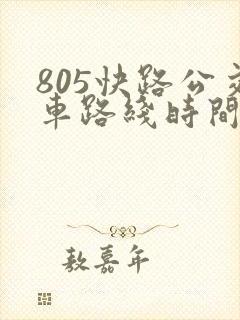 805快路公交
車路綫時間
敖嘉年